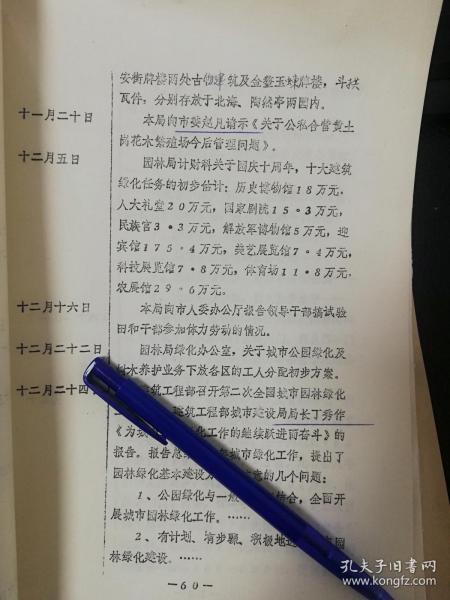 安街牌楼两处古物建筑及金鳌玉蝀牌楼，斗拱
瓦件，分别存放于北海、陶然亭两园内。
十一月二十日
本局向市委赵凡请示《关于公私合营黄土
岗花木繁殖场今后管理问题》。
十二月五日
园林局计财科关于国庆十周年，十大建筑
绿化任务的初步估计：历史博物馆18万元，
人大礼堂20万元，国家剧院15·3万元，
民族宫3·3万元，解放军博物馆5万元，迎
宾馆175·4万元，美艺展览馆7·4万元，
科技展览馆7·8万元，体育场11·8万元，
农展馆29·6万元。
十二月十六日
本局向市人委办公厅报告领导干部搞试验
田和干部参加体力劳动的情况。
十二月二十二日
园林局绿化办公室，关于城市公园绿化及
树木养护业务下放各区的人工分配初步方案。
十二月二十四
筑工程部召开第二次全国城市园林绿化
建筑工程部城市建设局局长丁秀作
《为城 化工作的继续跃进而奋斗》的
报告。报告总 城市绿化工作，提出了
园林绿化基本建设 的几个问题：
1、公园绿化与一般 结合，全面开
展城市园林绿化工作。……
2、有计划、有步骤、积极地进 市园
林绿化建设。……
—60—
孔夫子旧书网